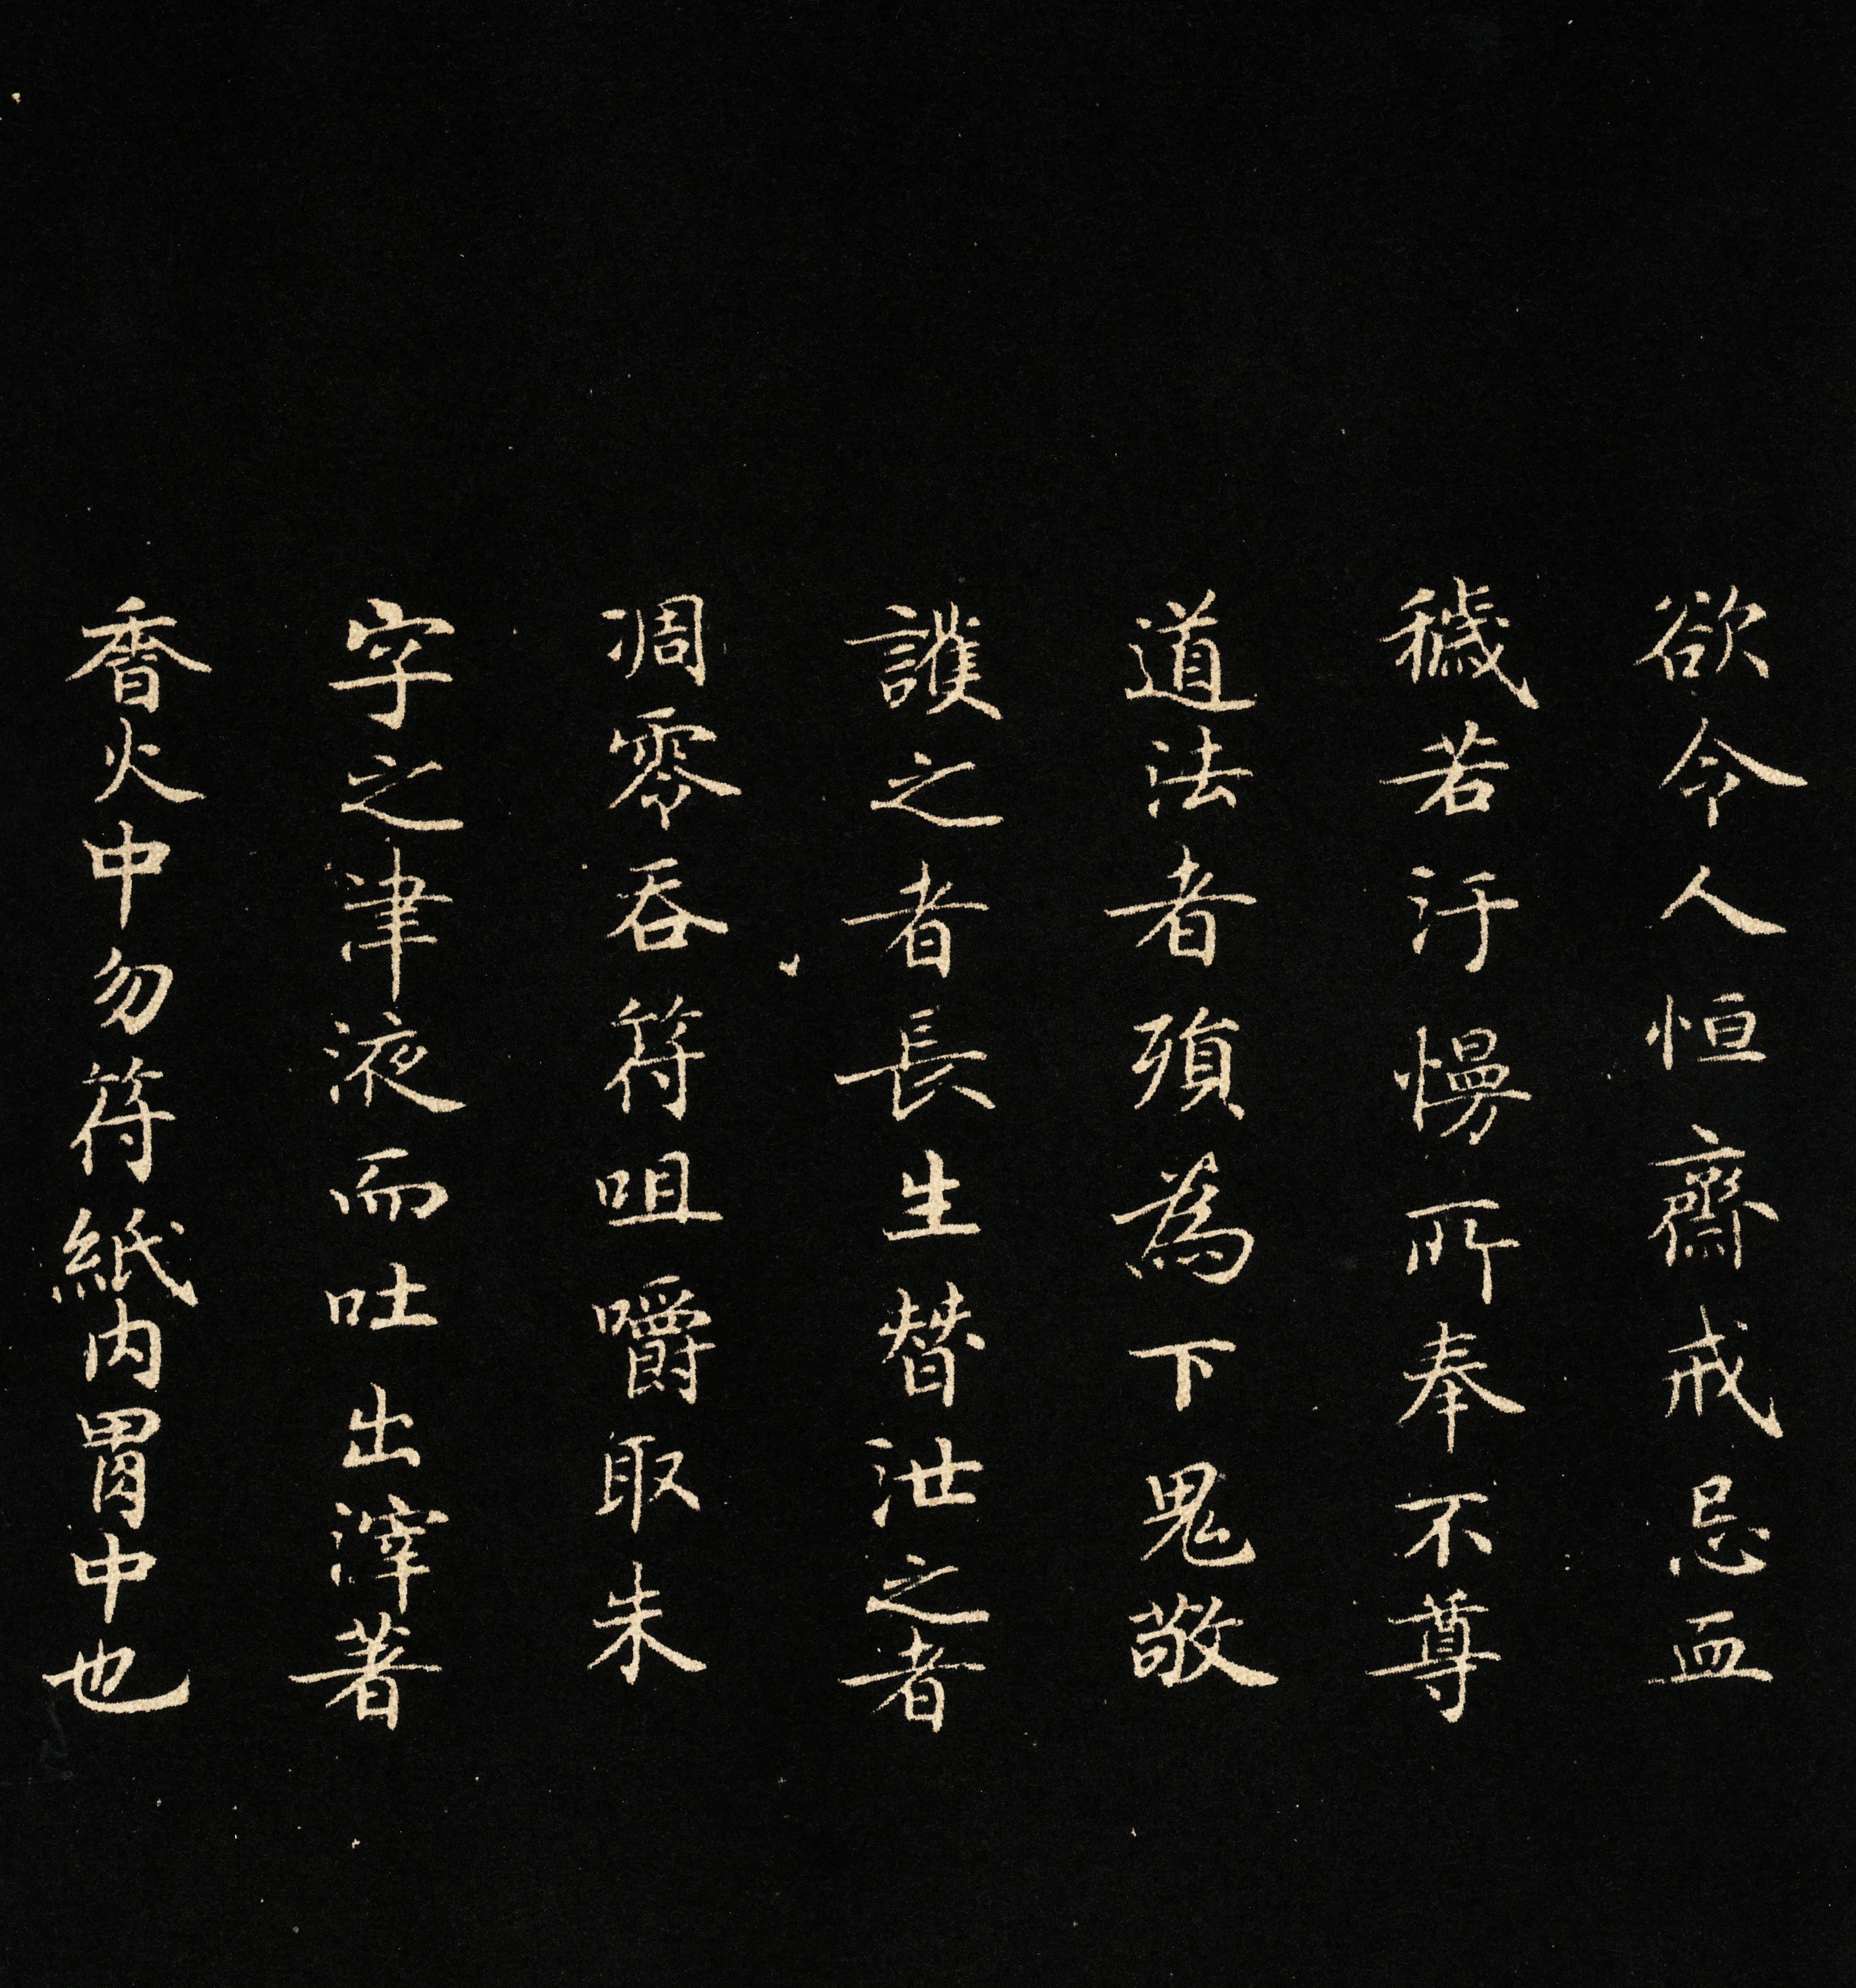 欲令人恒齋戒忌血
穢若汙慢所奉不尊
道法者須為下鬼敬
護之者長生替泄之者
凋零吞符咀嚼取朱
字之津液而吐出滓著
香火中勿符紙內胃中也